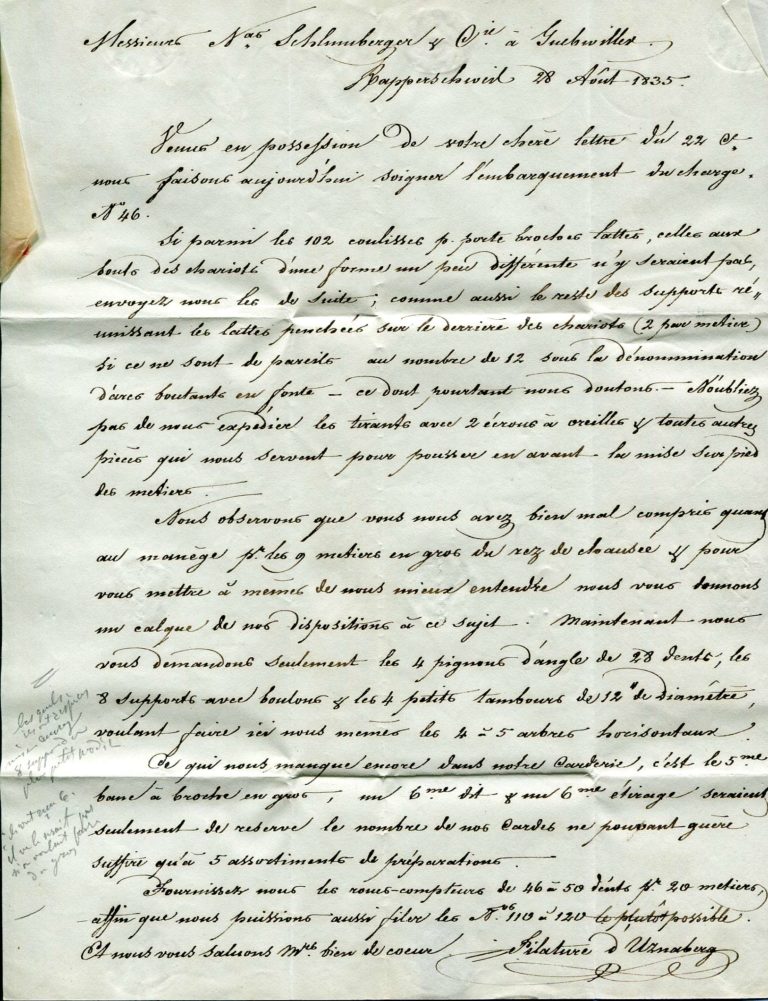 Messieurs Nas Schlumberger & Cie. à Guebwiller.
Rapperschweil 28 Août 1835.
Venus en possession de votre chère lettre du 22 Ct
nous faisons aujourd'hui soigner l'embarquement du charge.
No 46.
Si parmi les 102 coulisses p. porte broches lattes, celles aux
bouts des chariots d'une forme un peu différente n'y seraient pas,
envoyez nous les de suite; comme aussi le reste des supports ré"
unissant les lattes penchées sur le derrière des chariots (2 par metier)
si ce ne sont de pareils au nombre de 12 sous la dénommination
d'arcs boutants en fonte — ce dont pourtant nous doutons. — N'oubliez
pas de nous expédier les tirants avec 2 écrous à oreilles & toutes autres
pièces qui nous servent pour pousser en avant la mise sur pied
des metiers.
Nous observons que vous nous avez bien mal compris quant
au manège pr. les 9 metiers en gros du rez de chausée & pour
vous mettre à mêmes de nous mieux entendre nous vous donnons
un calque de nos dispositions à ce sujet. Maintenant nous
vous demandons seulement les 4 pignons d'angle de 28 dents, les
8 supports avec boulons & les 4 petits tambours de 12" de diamètre,
voulant faire ici nous mêmes les 4 à 5 arbres horisontaux.
Ce qui nous manque encore dans notre Carderie, c'est le 5me
banc à broche en gros, un 6me dit & un 6me étirage seraient
seulement de reserve le nombre de nos Cardes ne pouvant guère
suffire qu'à 5 assortiments de préparations.
Fournissez nous les roues-compteurs de 46 à 50 dents pr. 20 metiers,
affin que nous puissions aussi filer les Nos 110 à 120 le plutôt possible.
Et nous vous saluons Mrs bien de coeur
Filature d'Uznaberg
8 supports
plus petit